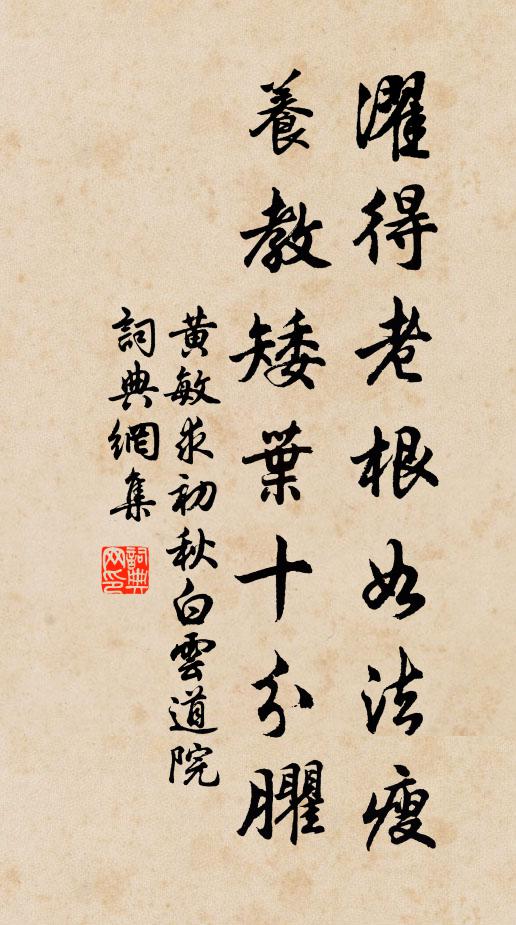 濯得老根如法瘦
養教矮葉十分臞
黃敏求初秋白雲道院
詞典網集
詞典網印